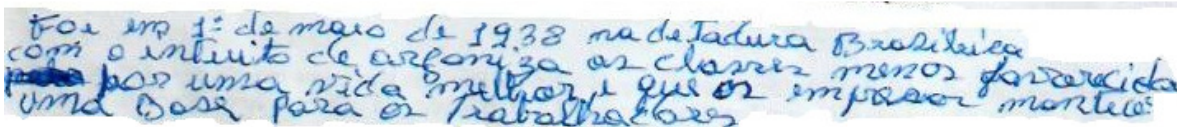 Foi em 1º de maio de 1938 na detadura Brasileira
com o intuito de arganiza as classes menos favorecida
por uma vida melhor, e que os empresor manteve
uma Base para os Trabalhadores